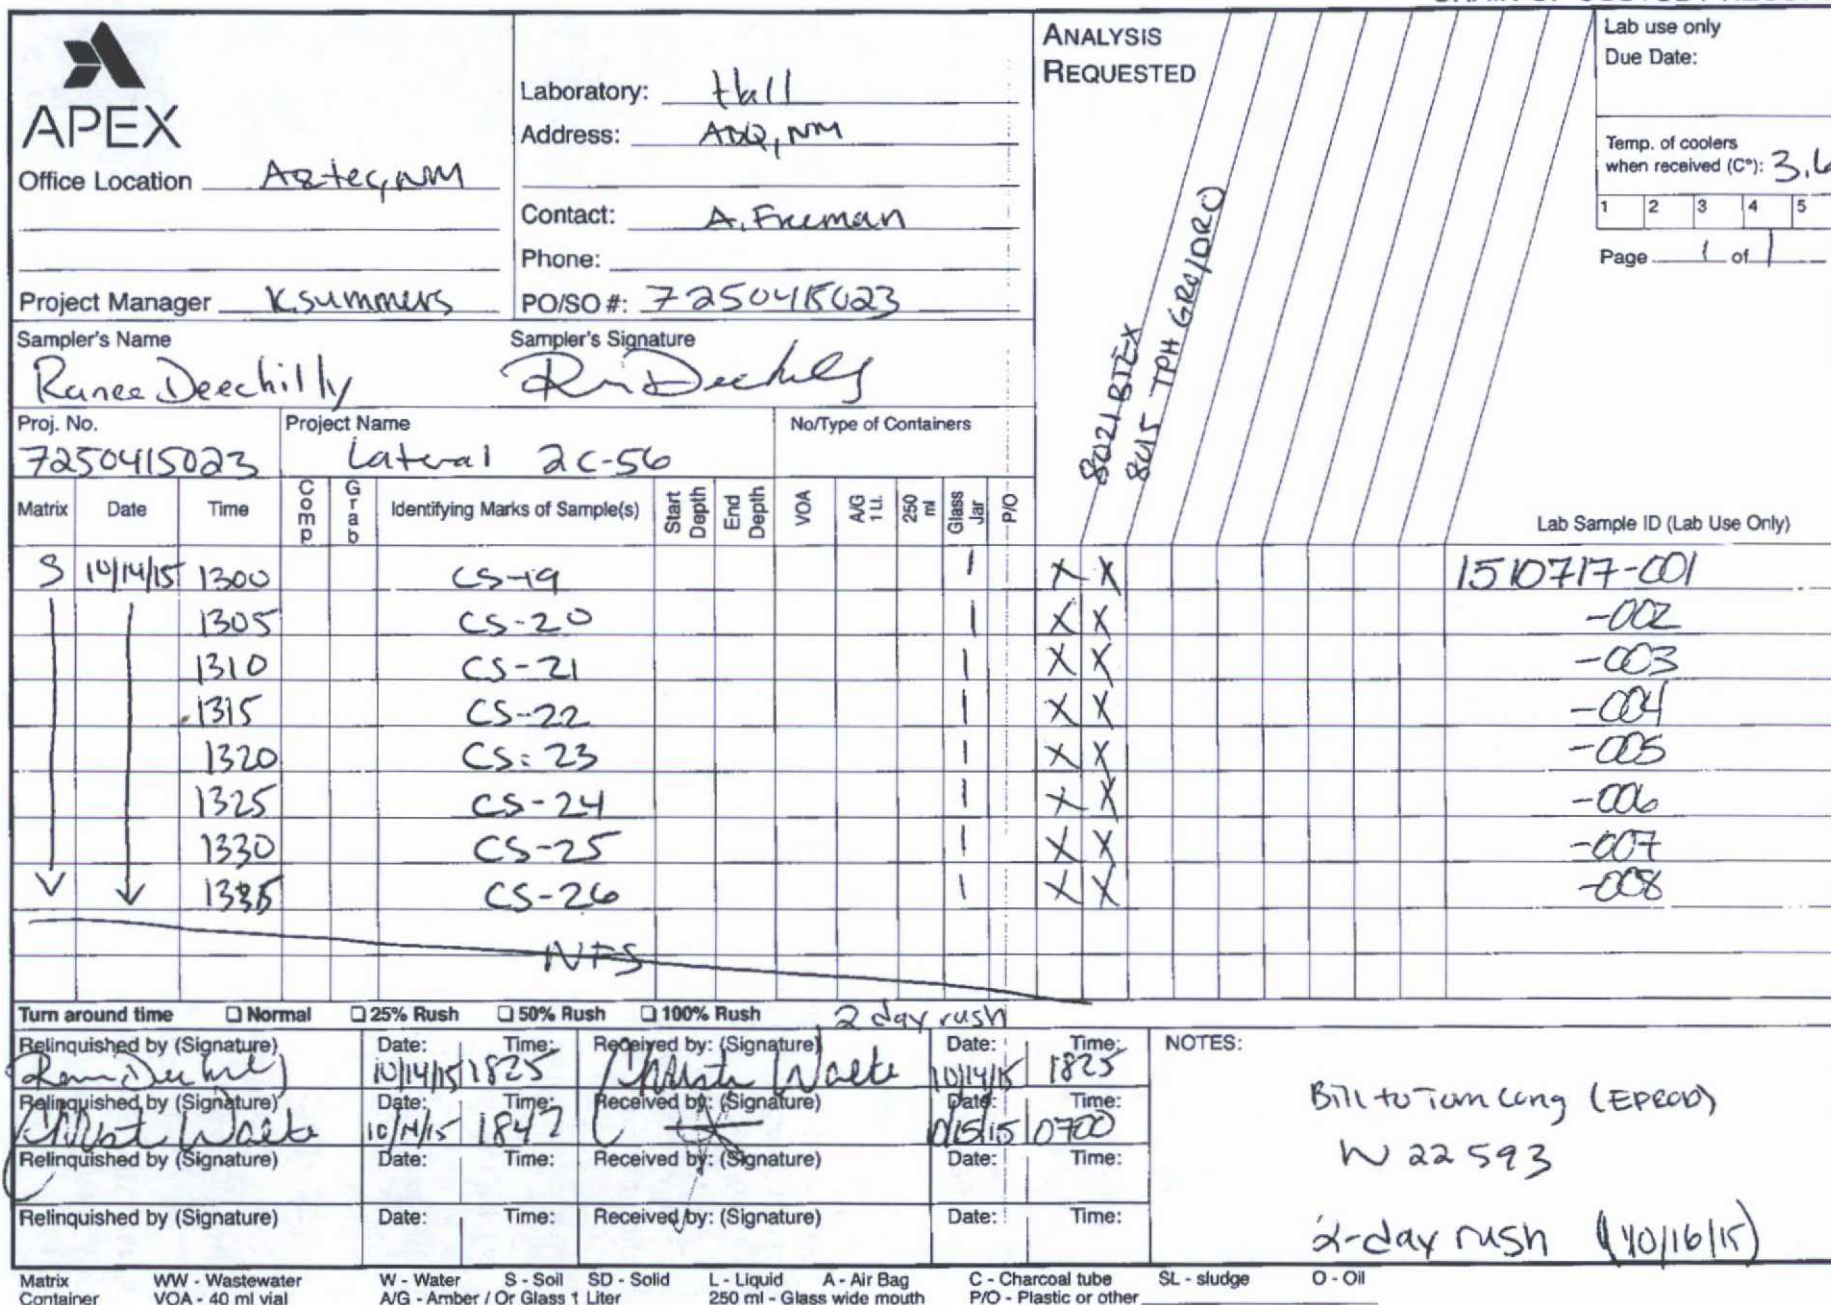 APEX
Office Location Aztec, NM
Project Manager K Summers
Laboratory: Hall
Address: ABQ, NM
Contact: A. Freeman
Phone:
PO/SO #: 7250415023
ANALYSIS
REQUESTED
8021 BTEX
8015 TPH GRO/DRO
Lab use only
Due Date:
Temp. of coolers
when received (C°): 3.6
1 2 3 4 5
Page 1 of 1
Sampler's Name
Ranee Deechilly
Sampler's Signature
Proj. No.
7250415023
Project Name
Lateral 2C-56
No/Type of Containers
Matrix Date Time Comp Grab Identifying Marks of Sample(s) Start Depth End Depth VOA A/G 1 Lt. 250 ml Glass Jar P/O Lab Sample ID (Lab Use Only)
S 10/14/15 1300 CS-19 1 X X 1510717-001
1305 CS-20 1 X X -002
1310 CS-21 1 X X -003
1315 CS-22 1 X X -004
1320 CS-23 1 X X -005
1325 CS-24 1 X X -006
1330 CS-25 1 X X -007
1335 CS-26 1 X X -008
NFS
Turn around time Normal 25% Rush 50% Rush 100% Rush 2 day rush
Relinquished by (Signature) Date: Time: Received by: (Signature) Date: Time:
10/14/15 1825 10/14/15 1825
Relinquished by (Signature) Date: Time: Received by: (Signature) Date: Time:
10/14/15 1847 10/15/15 0700
Relinquished by (Signature) Date: Time: Received by: (Signature) Date: Time:
Relinquished by (Signature) Date: Time: Received by: (Signature) Date: Time:
NOTES:
Bill to Tom Long (EPROD)
N 22593
2-day rush (10/16/15)
Matrix WW - Wastewater W - Water S - Soil SD - Solid L - Liquid A - Air Bag C - Charcoal tube SL - sludge O - Oil
Container VOA - 40 ml vial A/G - Amber / Or Glass 1 Liter 250 ml - Glass wide mouth P/O - Plastic or other